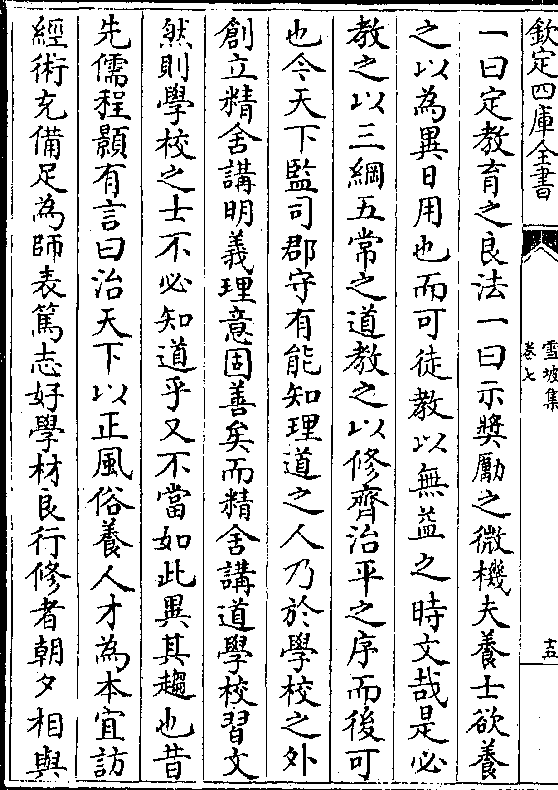 欽定四庫全書
雪坡集
卷七
十五
一曰定教育之良法一曰示奬勵之微機夫養士欲養
之以為異日用也而可徒教以無益之時文哉是必
教之以三綱五常之道教之以修齊治平之序而後可
也今天下監司郡守有能知理道之人乃於學校之外
創立精舍講明義理意固善矣而精舍講道學校習文
然則學校之士不必知道乎又不當如此異其趨也昔
先儒程顥有言曰治天下以正風俗養人才為本宜訪
經術充備足為師表篤志好學材良行修者朝夕相與